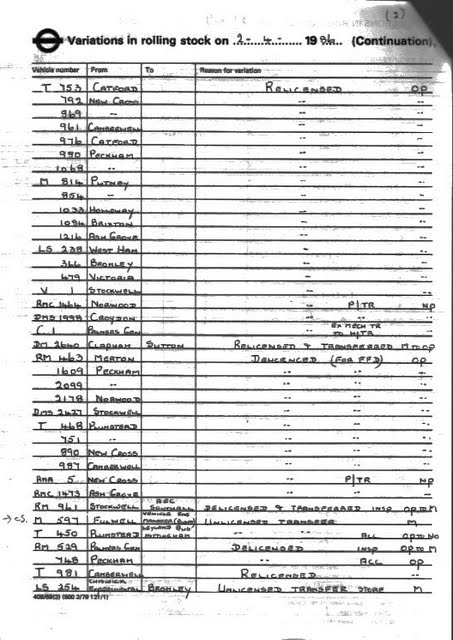 (2)
Variations in rolling stock on 2-4- 1986 (Continuation).
Vehicle number From To Reason for variation
T 753 CATFORD RELICENSED OP
792 NEW CROSS -- --
869 -- -- --
961 CAMBERWELL -- --
976 CATFORD -- --
980 PECKHAM -- --
1068 -- -- --
M 814 PUTNEY -- --
854 -- -- --
1033 HOLLOWAY -- --
1084 BRIXTON -- --
1216 ASH GROVE -- --
LS 238 WEST HAM -- --
366 BROMLEY -- --
479 VICTORIA -- --
V 1 STOCKWELL -- --
RMC 1464 NORWOOD -- P/TR NP
DMS 1998 CROYDON -- -- --
C 1 PALMERS GRN EX MECH TR
TO H/TR
DM 2640 CLAPHAM SUTTON RELICENSED & TRANSFERRED M TO OP
RM 463 MERTON DELICENCED (FOR FFD) OP
1609 PECKHAM -- -- --
2099 -- -- -- --
2178 NORWOOD -- -- --
DMS 2427 STOCKWELL -- -- --
T 468 PLUMSTEAD -- -- --
751 -- -- -- --
890 NEW CROSS -- -- --
987 CAMBERWELL -- -- --
5 NEW CROSS -- P/TR NP
RMC 1473 ASH GROVE -- -- --
RM 961 SOUTHALL AEC DELICENSED & TRANSFERRED INSP OP TO M
→ CS. M 597 FULWELL VEHICLE ENG UNLICENSED TRANSFER M
T 450 PLUMSTEAD LEYLAND BUS NOTTINGHAM -- -- ALL OP TO NO
RM 529 PALMERS GRN DELICENSED INSP OP TO M
748 PECKHAM -- ACC OP
T 981 CAMBERWELL RELICENSED --
LS 254 CHISWICK EXPERIMENTAL BROMLEY UNLICENSED TRANSFER STORE M